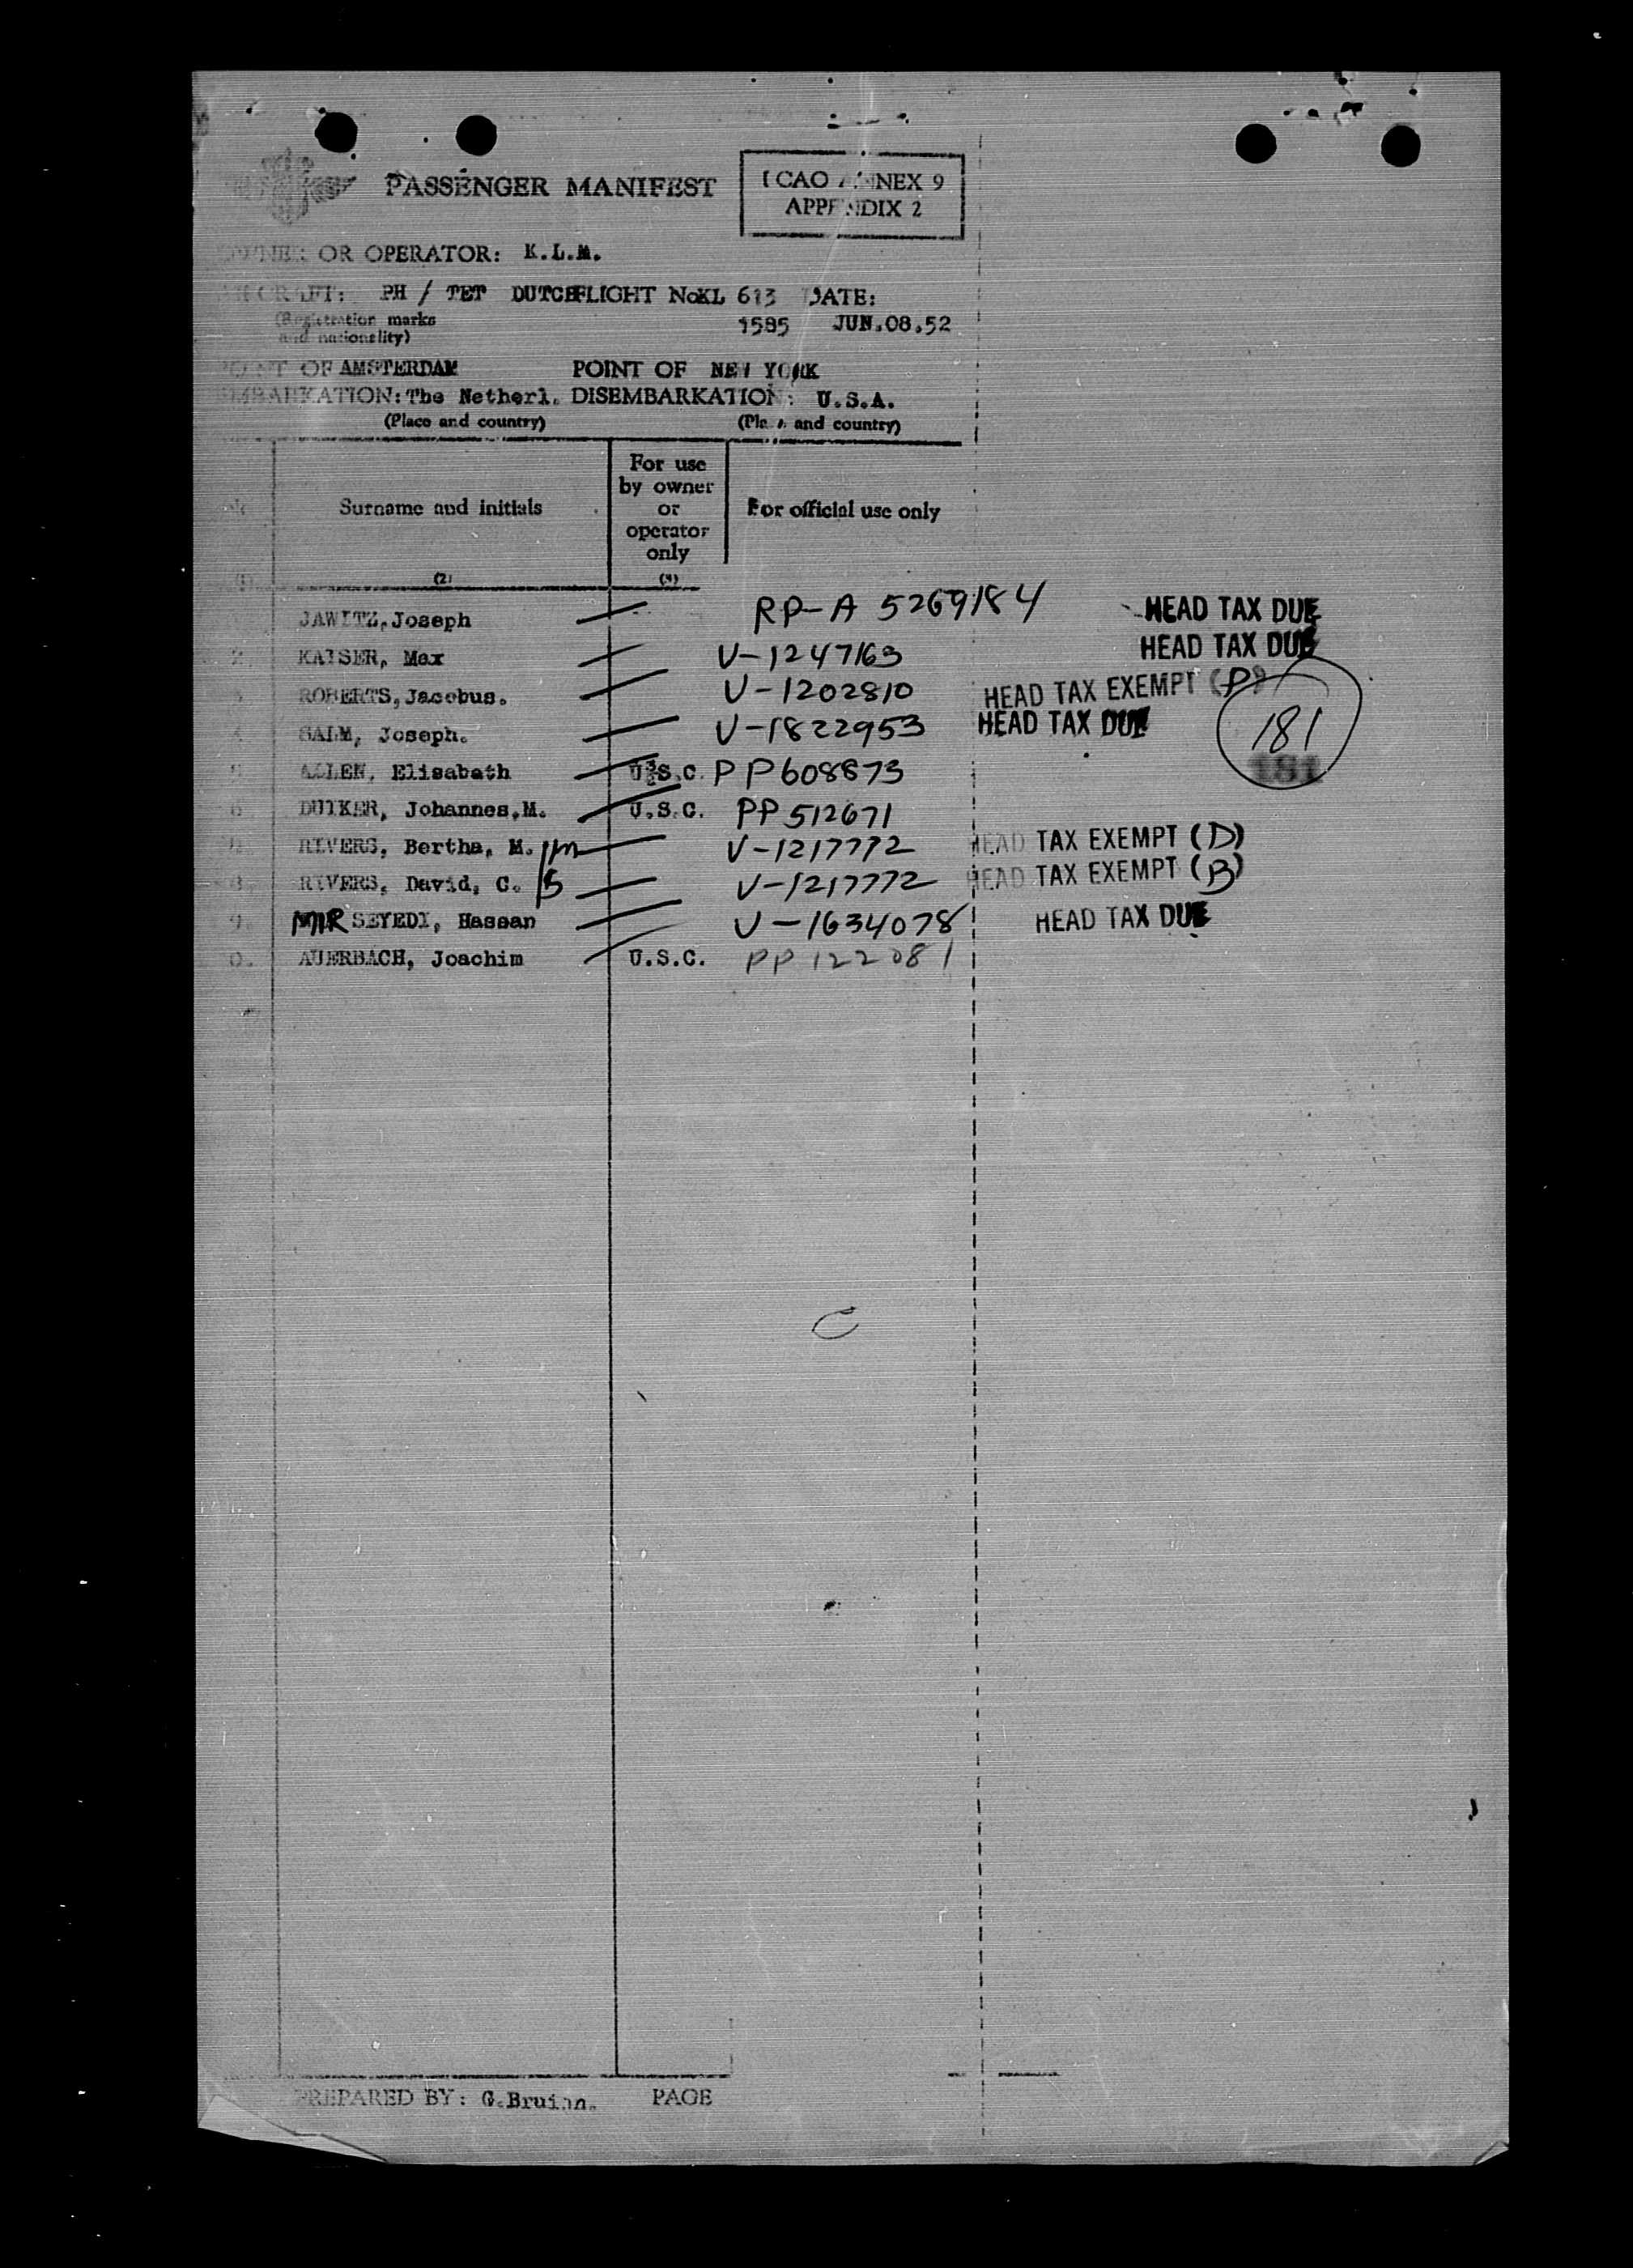 PASSENGER MANIFEST
ICAO ANNEX 9
APPENDIX 2
OWNER OR OPERATOR: K.L.M.
AIRCRAFT: PH / TET DUTCH FLIGHT No KL 613 DATE:
(Registration marks and nationality) 1595 JUN.08.52
POINT OF AMSTERDAM POINT OF NEW YORK
EMBARKATION: The Netherl. DISEMBARKATION: U.S.A.
(Place and country) (Place and country)
Surname and initials For use by owner or operator only For official use only
(2) (4)
JAWITZ, Joseph RP-A 5269184 HEAD TAX DUE
2. KAISER, Max V-1247163 HEAD TAX DUE
ROBERTS, Jacobus. V-1202810 HEAD TAX EXEMPT (D)
SALM, Joseph. V-1822953 HEAD TAX DUE
181
181
ALLEN, Elisabeth U.S.C. PP608873
DUIKER, Johannes, M. U.S.C. PP512671
RIVERS, Bertha, M. /m V-1217772 HEAD TAX EXEMPT (D)
RIVERS, David, C. /S V-1217772 HEAD TAX EXEMPT (B)
9. MIR SEYEDI, Hassan V-1634078 HEAD TAX DUE
0. AUERBACH, Joachim U.S.C. PP122081
C
PREPARED BY: G.Bruinn. PAGE